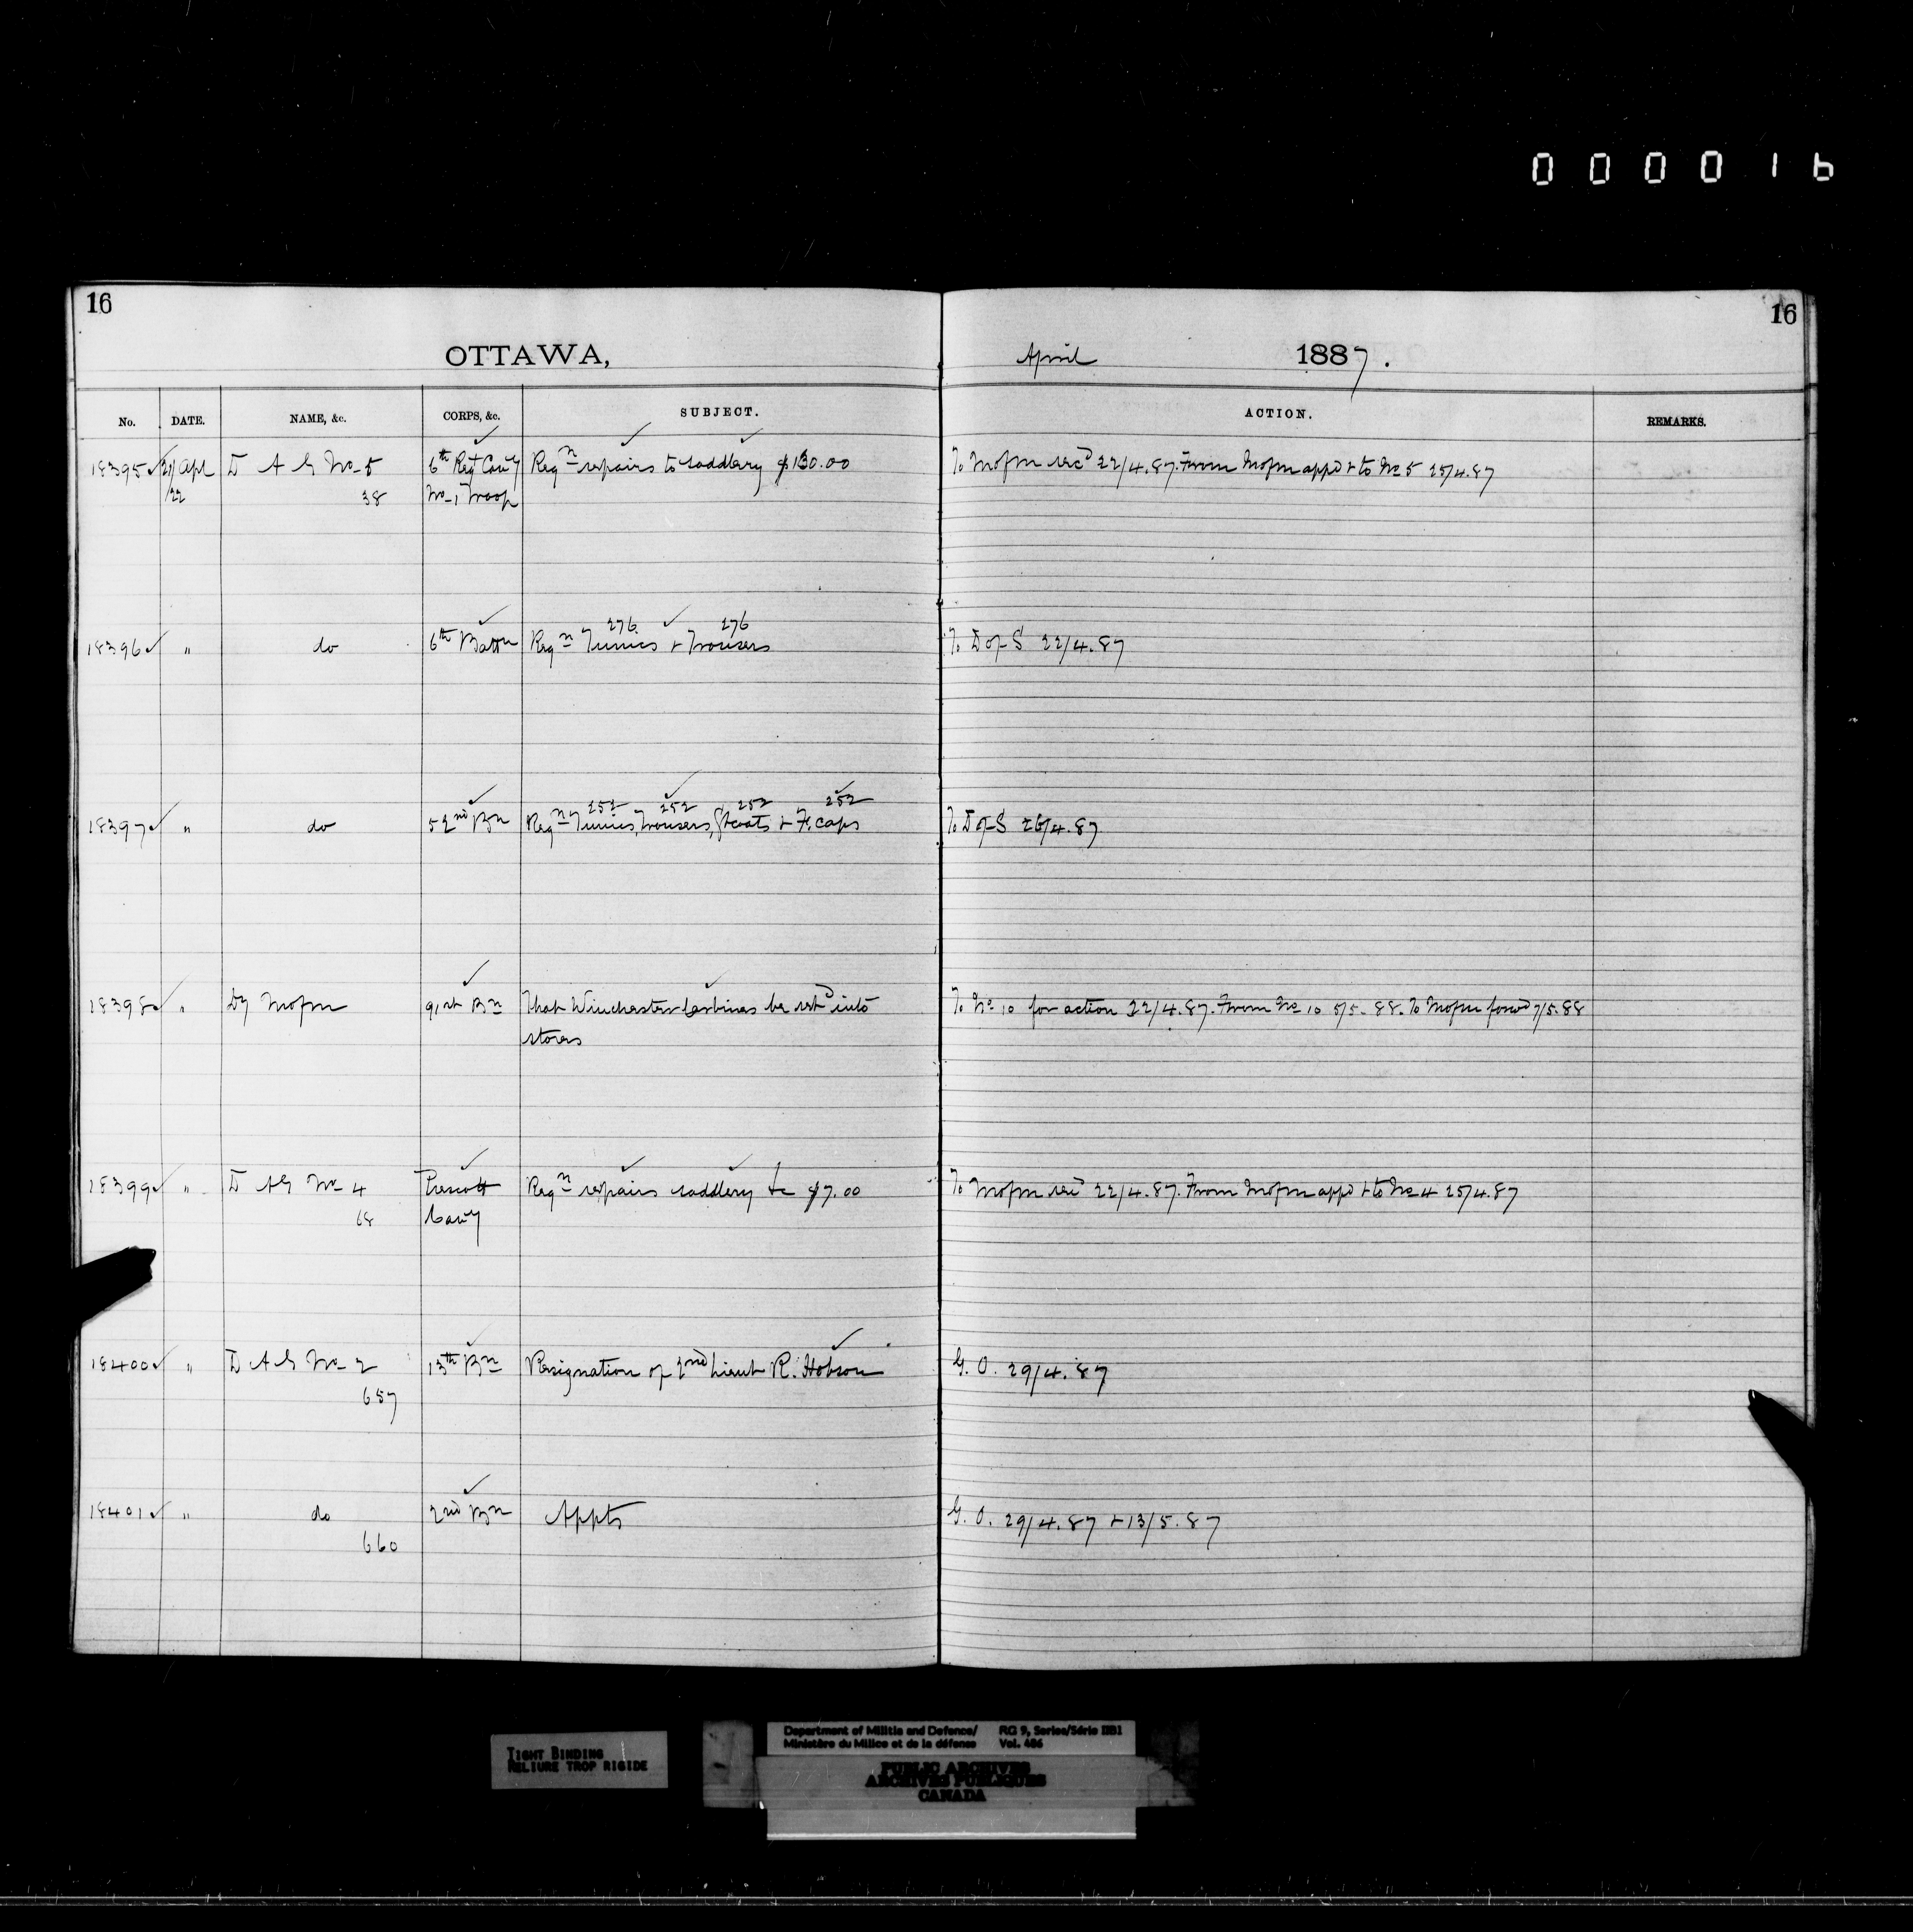 000016
16
16
OTTAWA,
April 1887.
No. DATE. NAME, &c. CORPS, &c. SUBJECT. ACTION. REMARKS.
18395 21/Apl D A G No 5 6th Regt Cavy Reqn repairs to saddlery $130.00 To Mofm recd 22/4.87. From Mofm appd & to No 5 25/4.87
/22 38 No 1 Troop
276 276
18396 " do 6th Battn Reqn Tunics & Trousers To D of S 22/4.87
252 252 252 252
18397 " do 52nd Bn Reqn Tunics, Trousers, Gtcoats & F. caps To D of S 26/4.87
18398 " Dy Mofm 91st Bn That Winchester Carbines be retd into To No 10 for action 22/4.87. From No 10 5/5.88. To Mofm forwd 7/5.88
stores
18399 " D A G No 4 Prescott Reqn repairs saddlery &c $7.00 To Mofm recd 22/4.87. From Mofm appd & to No 4 25/4.87
68 Cavy
18400 " D A G No 2 13th Bn Resignation of 2nd Lieut R. Hobson G. O. 29/4.87
657
18401 " do 2nd Bn Appts G. O. 29/4.87 & 13/5.87
660
TIGHT BINDING
RELIURE TROP RIGIDE
Department of Militia and Defence/ RG 9, Series/Série IIB1
Ministère du Milice et de la défense Vol. 486
PUBLIC ARCHIVES
ARCHIVES PUBLIQUES
CANADA